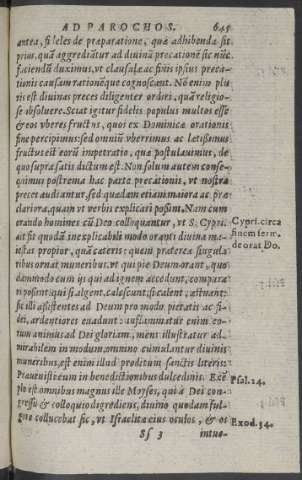 AD PAROCHOS. 645
antea, fideles de præparatione, quæ adhibenda sit
prius, quã aggrediãtur ad diuinã precationē sic nũc
faciendũ duximus, vt clausulæ ac finis ipsius preca-
tionis causam rationēque cognoscant. Nō enim plu
ris est diuinas preces diligenter ordiri, quã religio-
se absoluere. Sciat igitur fidelis populus multos esse
& eos vberes fructus, quos ex Dominicæ orationis
fine percipimus: sed omniũ vberrimus ac lętissimus
fructus est eorũ impetratio, quæ postulauimus, de
quo supra satis dictum est. Non solum autem conse-
quimur postrema hac parte precationis, vt nostræ
preces audiantur, sed quædam etiam maiora ac præ
clariora, quàm vt verbis explicari possint, Nam cum
orando homines cũ Deo colloquantur, vt S. Cypri.
ait fit quodã inexplicabili modo oranti diuina ma-
iestas propior, quã cæteris: quem præterea singula
ribus ornat muneribus, vt qui pie Deum orant, quo
dammodo cum ijs qui ad ignem accedunt, compara-
ri possent: qui si algent, calescunt, si calent, æstuant:
sic illi assistentes ad Deum pro modo pietatis ac fi-
dei, ardentiores euadunt: inflammatur enim eo-
rum animus ad Dei gloriam, mens illustratur ad
mirabilem in modum, omnino cumulantur diuinis
muneribus, est enim illud proditum sanctis literis:
Præuenisti eum in benedictionibus dulcedinis. Exē
plo est omnibus magnus ille Moyses, qui a Dei con-
gressu & colloquio digrediens, diuino quodam ful-
gore collucebat sic, vt Israelitæ eius oculos, & os
Sf 3 intue-
Cypri. circa
finem serm.
de orat. Do.
Psal. 24.
Exod. 34.